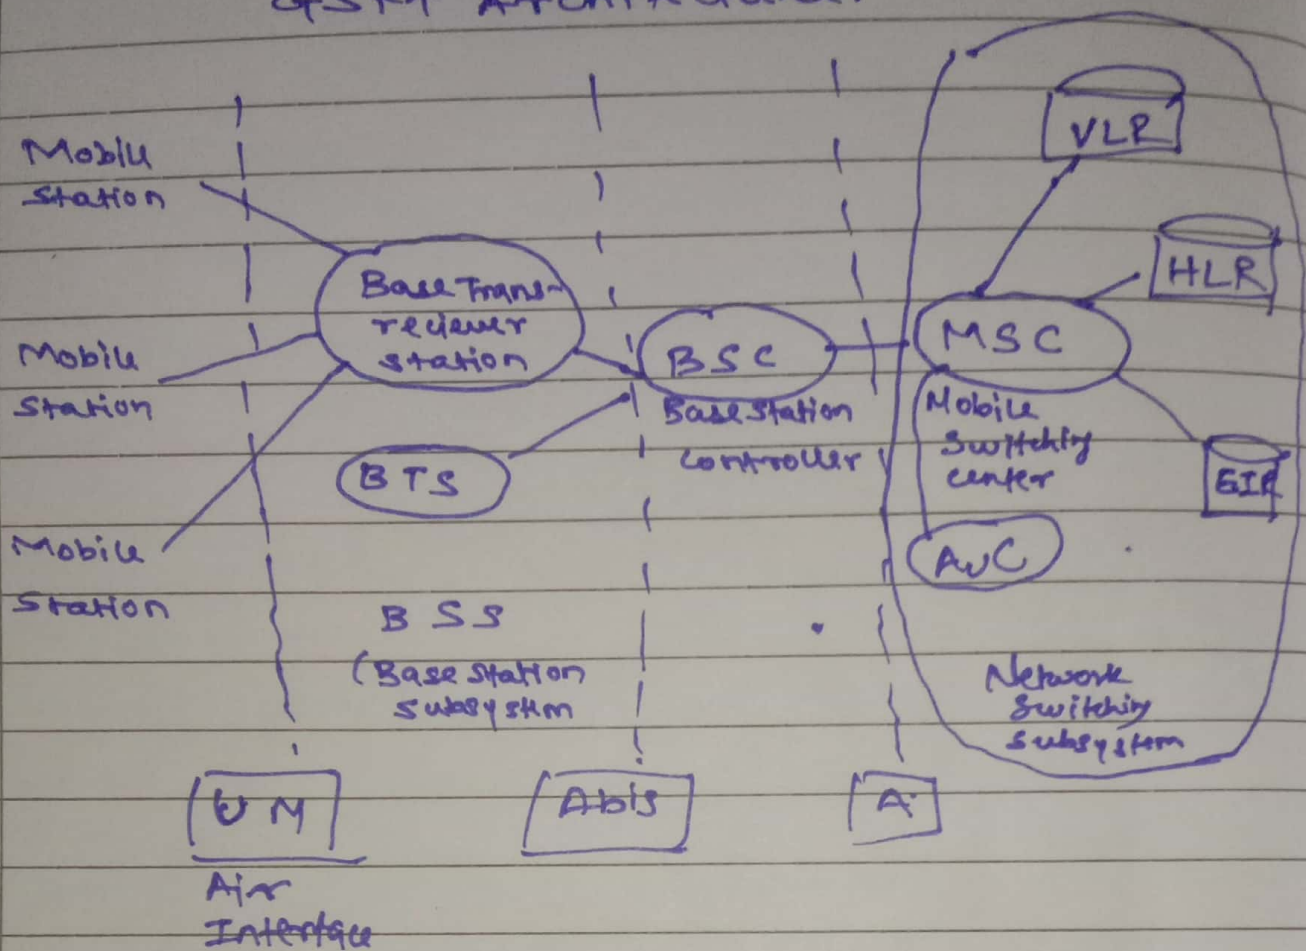 GSM Architecture
Mobile
Station
Mobile
Station
Mobile
Station
Base Trans-
reciever
station
BTS
BSS
(Base Station
subsystem
BSC
Base Station
controller
VLR
HLR
MSC
Mobile
Switching
center
EIR
AuC
Network
Switching
subsystem
UM
Air
Interface
Abis
A